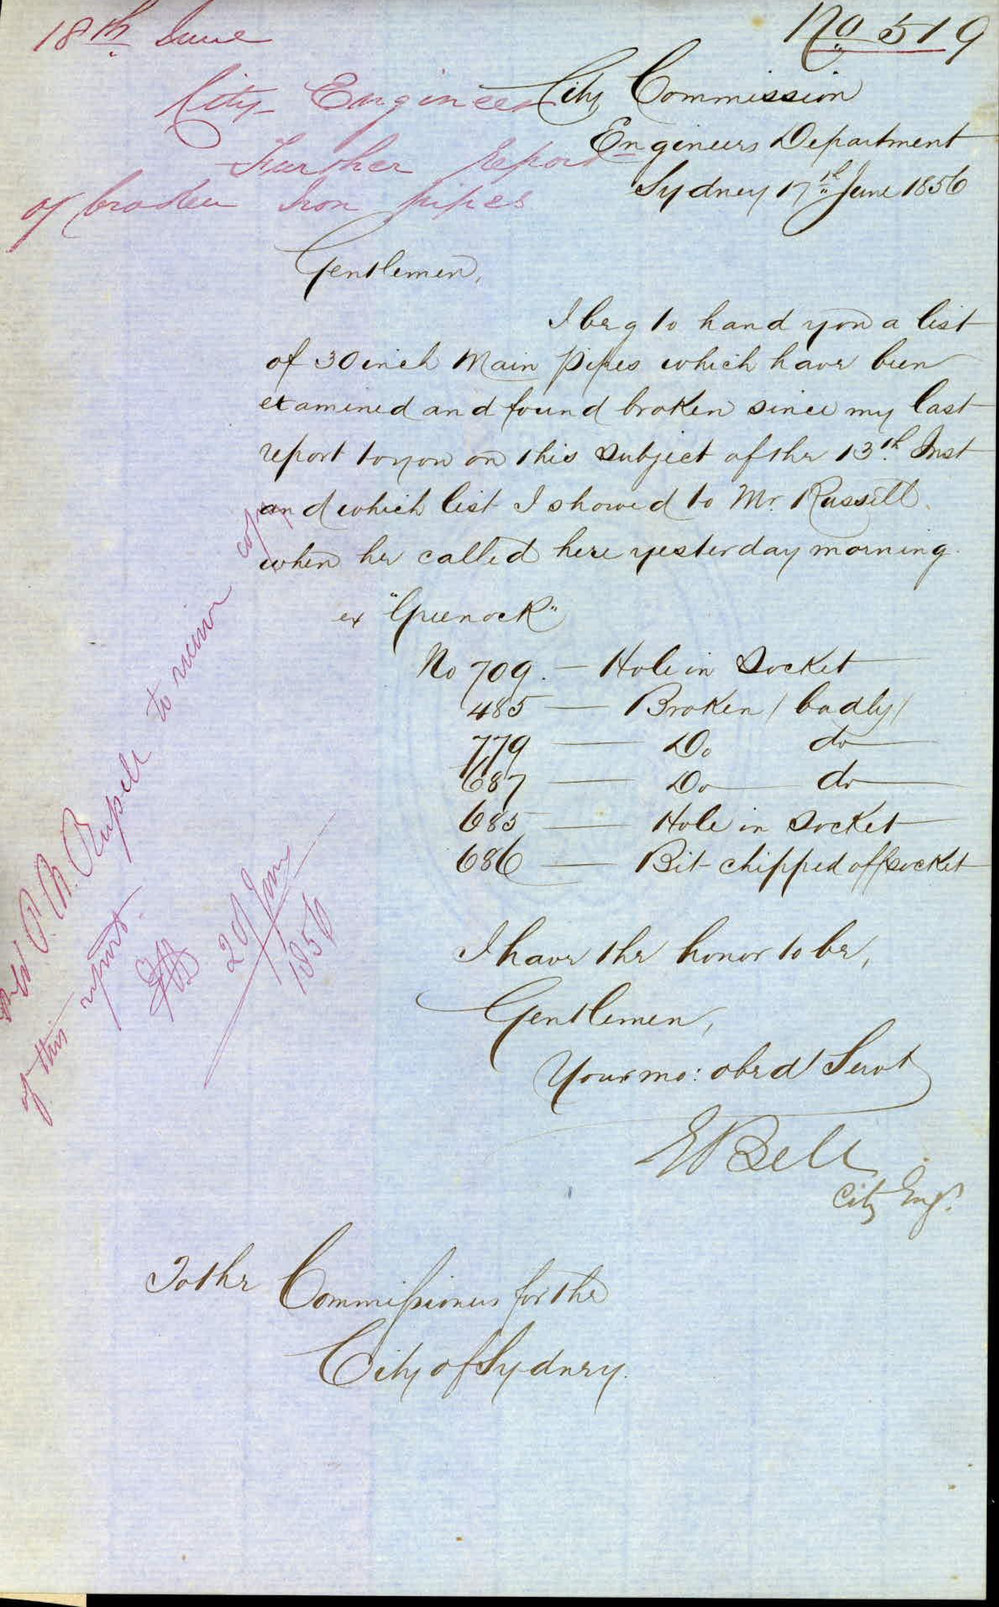 No 519
18th June
City Engineer
Further report
of broken Iron pipes
City Commission
Engineers Department
Sydney 17th June 1856
Gentlemen,
I beg to hand you a list
of 30 inch Main pipes which have been
examined and found broken since my last
report to you on this subject of the 13th Inst
and which list I showed to Mr. Russell
when he called here yesterday morning.
ex "Greenock"
No 709. — Hole in Socket
485 — Broken / badly /
779 — Do do
687 — Do do
685 — Hole in socket
686 — Bit chipped off socket
I have the honor to be,
Gentlemen,
Your mo: obed Servt
E Bell
City Engr.
To the Commissioners for the
City of Sydney.
P. N. Russell to receive copy
of this report.
20 June
1856